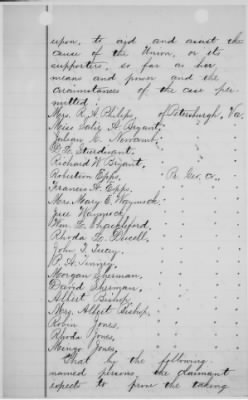 upon, to aid and assist the
cause of the Union, or its
supporters, so far as her
means and power and the
circumstances of the case per-
mitted:
Mrs. R. A. Philips, of Petersburgh, Va.
Miss Saley A. Bryant,
Julian C. Newcomb,
D. D. Sturdivant,
Richard W. Bryant,
Robertson Epps, Pr. Geo. Co.,
Francis A. Epps,
Mrs. Mary E. Waymock,
Jesse Waymock,
Wm. E. Shackleford,
Rhoda E. Driscoll,
John T.
R. A.
Morgan Sherman,
David Sherman,
Albert Bishop,
Mrs. Albert Bishop,
Robin Jones,
Rhoda Jones,
Mingo Jones,
That by the following
named persons, the claimant
expects to prove the taking